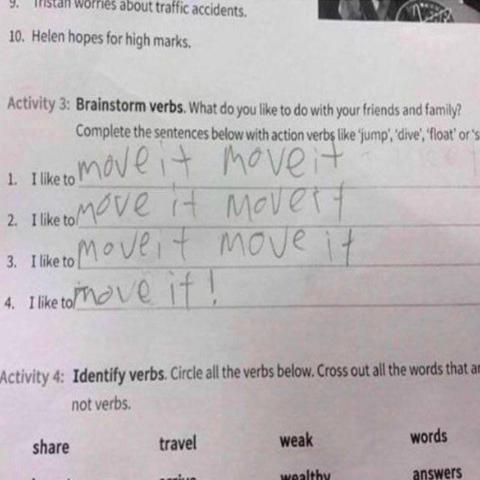 9. Tristan worries about traffic accidents.
10. Helen hopes for high marks.
Activity 3: Brainstorm verbs. What do you like to do with your friends and family?
Complete the sentences below with action verbs like 'jump', 'dive', 'float' or 's
1. I like to move it move it
2. I like to move it move it
3. I like to move it move it
4. I like to move it!
Activity 4: Identify verbs. Circle all the verbs below. Cross out all the words that ar
not verbs.
share travel weak words
wealthy answers